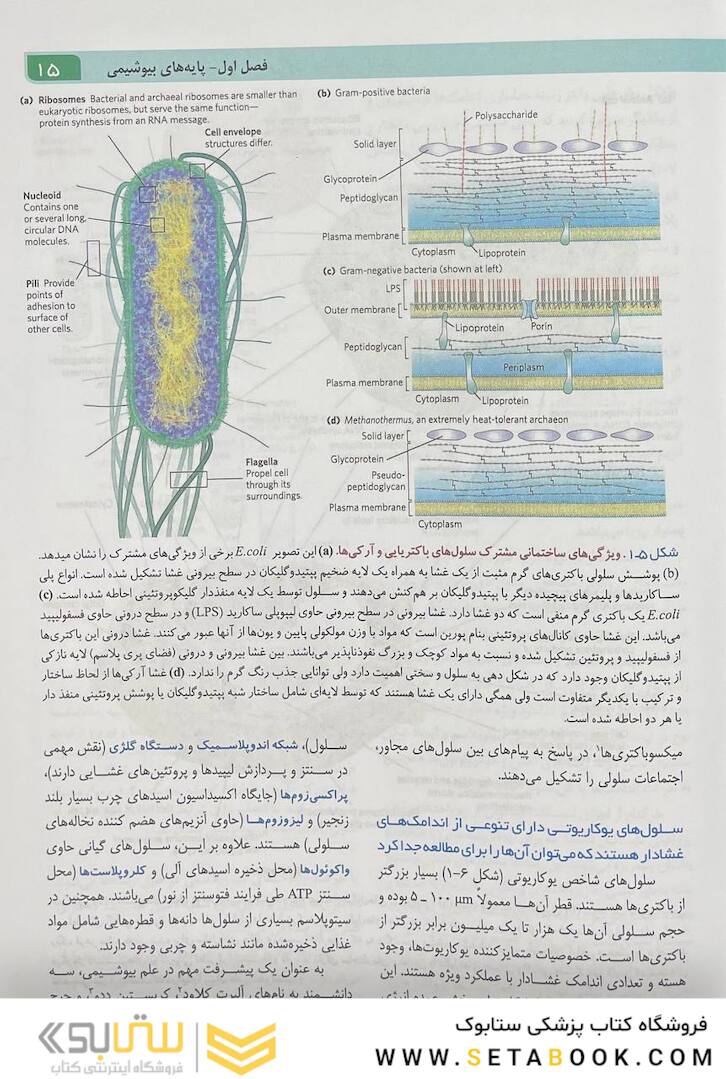 ۱۵
فصل اول- پایه‌های بیوشیمی
(a) Ribosomes Bacterial and archaeal ribosomes are smaller than
eukaryotic ribosomes, but serve the same function—
protein synthesis from an RNA message.
Cell envelope
structures differ.
Nucleoid
Contains one
or several long,
circular DNA
molecules.
Pili Provide
points of
adhesion to
surface of
other cells.
Flagella
Propel cell
through its
surroundings.
(b) Gram-positive bacteria
Polysaccharide
Solid layer
Glycoprotein
Peptidoglycan
Plasma membrane
Cytoplasm
Lipoprotein
(c) Gram-negative bacteria (shown at left)
LPS
Outer membrane
Lipoprotein
Porin
Peptidoglycan
Periplasm
Plasma membrane
Cytoplasm
Lipoprotein
(d) Methanothermus, an extremely heat-tolerant archaeon
Solid layer
Glycoprotein
Pseudo-
peptidoglycan
Plasma membrane
Cytoplasm
شکل ۵-۱. ویژگی‌های ساختمانی مشترک سلول‌های باکتریایی و آرکی‌ها. (a) این تصویر E.coli برخی از ویژگی‌های مشترک را نشان میدهد.
(b) پوشش سلولی باکتری‌های گرم مثبت از یک غشا به همراه یک لایه ضخیم پپتیدوگلیکان در سطح بیرونی غشا تشکیل شده است. انواع پلی
ساکاریدها و پلیمرهای پیچیده دیگر با پپتیدوگلیکان بر هم‌کنش می‌دهند و سلول توسط یک لایه منفذدار گلیکوپروتئینی احاطه شده است. (c)
E.coli یک باکتری گرم منفی است که دو غشا دارد. غشا بیرونی در سطح بیرونی حاوی لیپوپلی ساکارید (LPS) و در سطح درونی حاوی فسفولیپید
می‌باشد. این غشا حاوی کانال‌های پروتئینی بنام پورین است که مواد با وزن مولکولی پایین و یون‌ها از آنها عبور می‌کنند. غشا درونی این باکتری‌ها
از فسفولیپید و پروتئین تشکیل شده و نسبت به مواد کوچک و بزرگ نفوذناپذیر می‌باشند. بین غشا بیرونی و درونی (فضای پری پلاسم) لایه نازکی
از پپتیدوگلیکان وجود دارد که در شکل دهی به سلول و سختی اهمیت دارد ولی توانایی جذب رنگ گرم را ندارد. (d) غشا آرکی‌ها از لحاظ ساختار
و ترکیب با یکدیگر متفاوت است ولی همگی دارای یک غشا هستند که توسط لایه‌ای شامل ساختار شبه پپتیدوگلیکان یا پوشش پروتئینی منفذ دار
یا هر دو احاطه شده است.
میکسوباکتری‌ها¹، در پاسخ به پیام‌های بین سلول‌های مجاور،
اجتماعات سلولی را تشکیل می‌دهند.
سلول‌های یوکاریوتی دارای تنوعی از اندامک‌های
غشادار هستند که می‌توان آن‌ها را برای مطالعه جدا کرد
سلول‌های شاخص یوکاریوتی (شکل ۶-۱) بسیار بزرگتر
از باکتری‌ها هستند. قطر آن‌ها معمولاً ۵ ـ ۱۰۰ μm بوده و
حجم سلولی آن‌ها یک هزار تا یک میلیون برابر بزرگتر از
باکتری‌ها است. خصوصیات متمایزکننده یوکاریوت‌ها، وجود
هسته و تعدادی اندامک غشادار با عملکرد ویژه هستند. این
سلول)، شبکه اندوپلاسمیک و دستگاه گلژی (نقش مهمی
در سنتز و پردازش لیپیدها و پروتئین‌های غشایی دارند)،
پراکسی‌زوم‌ها (جایگاه اکسیداسیون اسیدهای چرب بسیار بلند
زنجیر) و لیزوزوم‌ها (حاوی آنزیم‌های هضم کننده نخاله‌های
سلولی) هستند. علاوه بر این، سلول‌های گیاهی حاوی
واکوئول‌ها (محل ذخیره اسیدهای آلی) و کلروپلاست‌ها (محل
سنتز ATP طی فرایند فتوسنتز از نور) می‌باشند. همچنین در
سیتوپلاسم بسیاری از سلول‌ها دانه‌ها و قطره‌هایی شامل مواد
غذایی ذخیره‌شده مانند نشاسته و چربی وجود دارند.
به عنوان یک پیشرفت مهم در علم بیوشیمی، سه
دانشمند به نام‌های آلبرت کلاود²، کریستین ددو³ و جرج
ستابوک
فروشگاه اینترنتی کتاب
فروشگاه کتاب پزشکی ستابوک
WWW.SETABOOK.COM